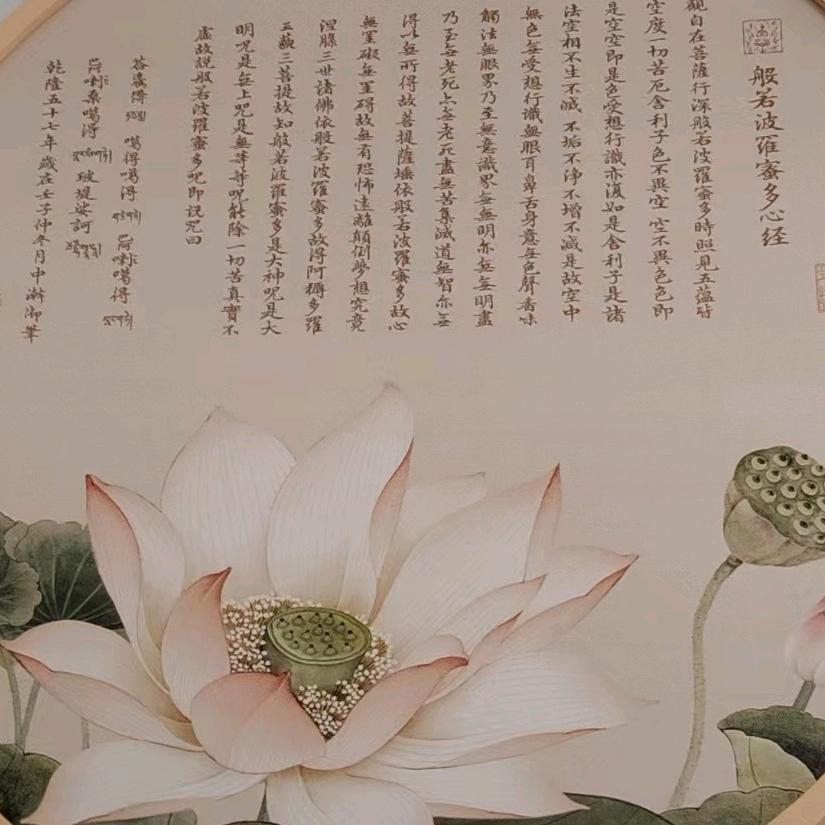 般若波羅蜜多心经
觀自在菩薩行深般若波羅蜜多時照見五蘊皆
空度一切苦厄舍利子色不異空空不異色色即
是空空即是色受想行識亦復如是舍利子是諸
法空相不生不滅不垢不淨不增不減是故空中
無色無受想行識無眼耳鼻舌身意無色聲香味
觸法無眼界乃至無意識界無無明亦無無明盡
乃至無老死亦無老死盡無苦集滅道無智亦無
得以無所得故菩提薩埵依般若波羅蜜多故心
無罣礙無罣碍故無有恐怖遠離顛倒夢想究竟
涅槃三世諸佛依般若波羅蜜多故得阿耨多羅
三藐三菩提故知般若波羅蜜多是大神咒是大
明咒是無上咒是無等等咒能除一切苦真實不
虛故說般若波羅蜜多咒即說咒曰
乾隆五十七年歲在壬子仲冬月中澣御筆